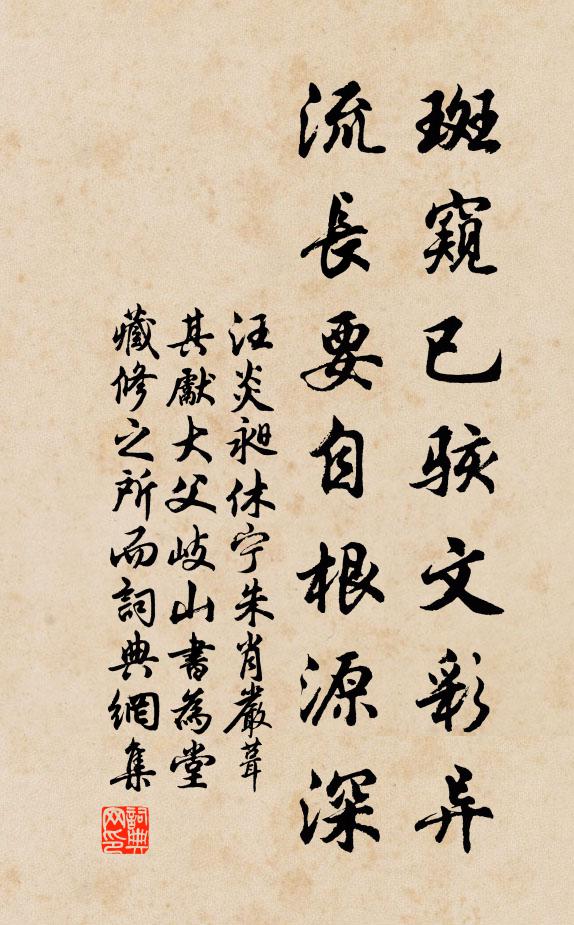 斑窺已駭文彩异
流長要自根源深
汪炎昶休宁朱肖嚴葺
其獻大父岐山書為堂
藏修之所而詞典網集
詞典网印